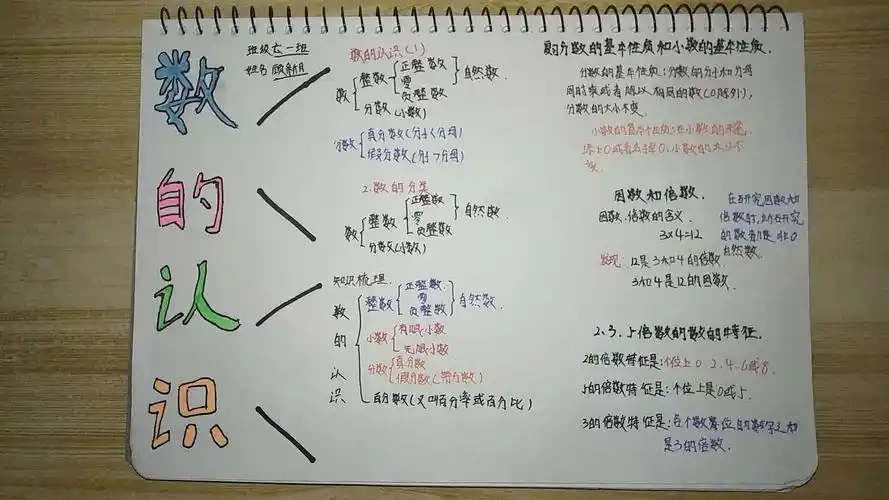 数的认识
班级六一班
姓名
数的认识(1)
数 整数 正整数 零 负整数 自然数.
分数(小数)
分数 真分数(分子<分母)
假分数(分子>分母)
2.数的分类
数 整数 正整数 零 负整数 自然数.
分数(小数)
知识梳理.
数的认识
整数 正整数 零 负整数 自然数.
小数 有限小数
无限小数
分数 真分数
假分数(带分数)
百分数(又叫百分率或百分比)
分数的基本性质和小数的基本性质.
分数的基本性质:分数的分子和分母
同时乘或者除以相同的数(0除外),
分数的大小不变.
小数的基本性质:在小数的末尾
添上0或者去掉0,小数的大小不
变.
因数和倍数.
因数、倍数的含义.
3×4=12
发现: 12是3和4的倍数
3和4是12的因数.
在研究因数和
倍数时,所在研究
的数都是非0
自然数.
2.3.5倍数的数的特征.
2的倍数特征是:个位上0.2.4.6或8.
5的倍数特征是:个位上是0或5.
3的倍数特征是:各个数位的数字之和
是3的倍数.